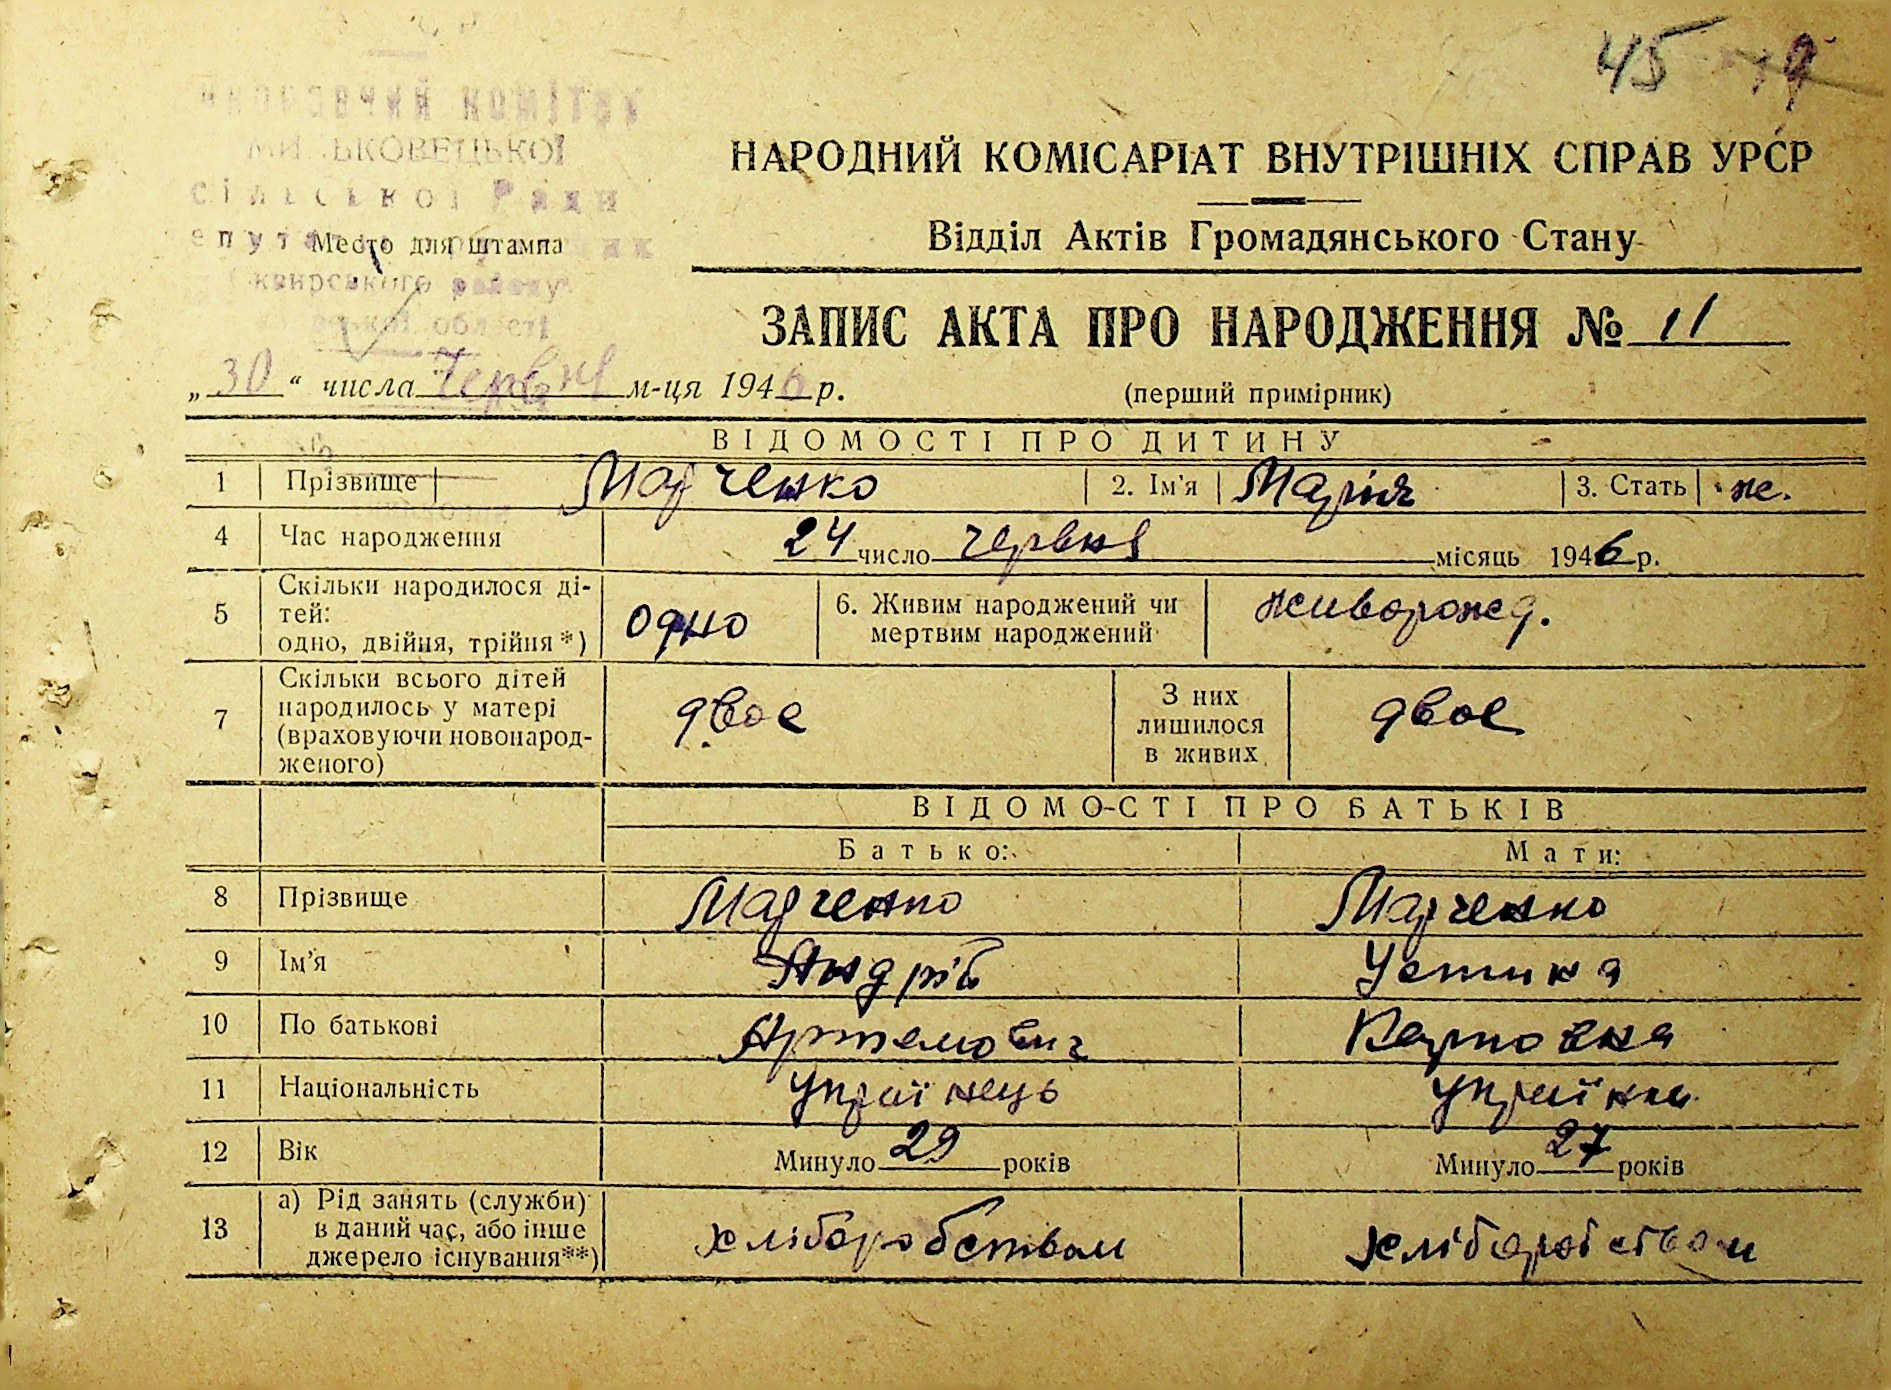 45
комітет
МИНЬКОВЕЦЬКОЇ
сільської Ради
Место для штампа
Сквирського району
області
НАРОДНИЙ КОМІСАРІАТ ВНУТРІШНІХ СПРАВ УРСР
Відділ Актів Громадянського Стану
ЗАПИС АКТА ПРО НАРОДЖЕННЯ № 11
„30“ числа Червня м-ця 1946 р. (перший примірник)
ВІДОМОСТІ ПРО ДИТИНУ
1 Прізвище Марченко 2. Ім'я Марія 3. Стать ж.
4 Час народження 24 число червня місяць 1946 р.
5 Скільки народилося ді-
тей:
одно, двійня, трійня*) одно 6. Живим народжений чи
мертвим народжений живорожд.
7 Скільки всього дітей
народилось у матері
(враховуючи новонарод-
женого) двое З них
лишилося
в живих двое
ВІДОМО-СТІ ПРО БАТЬКІВ
Батько: Мати:
8 Прізвище Марченко Марченко
9 Ім'я Андрій Устина
10 По батькові Артемович Карповна
11 Національність українець українка
12 Вік Минуло 29 років Минуло 27 років
13 а) Рід занять (служби)
в даний час, або інше
джерело існування**) хліборобством хліборобством